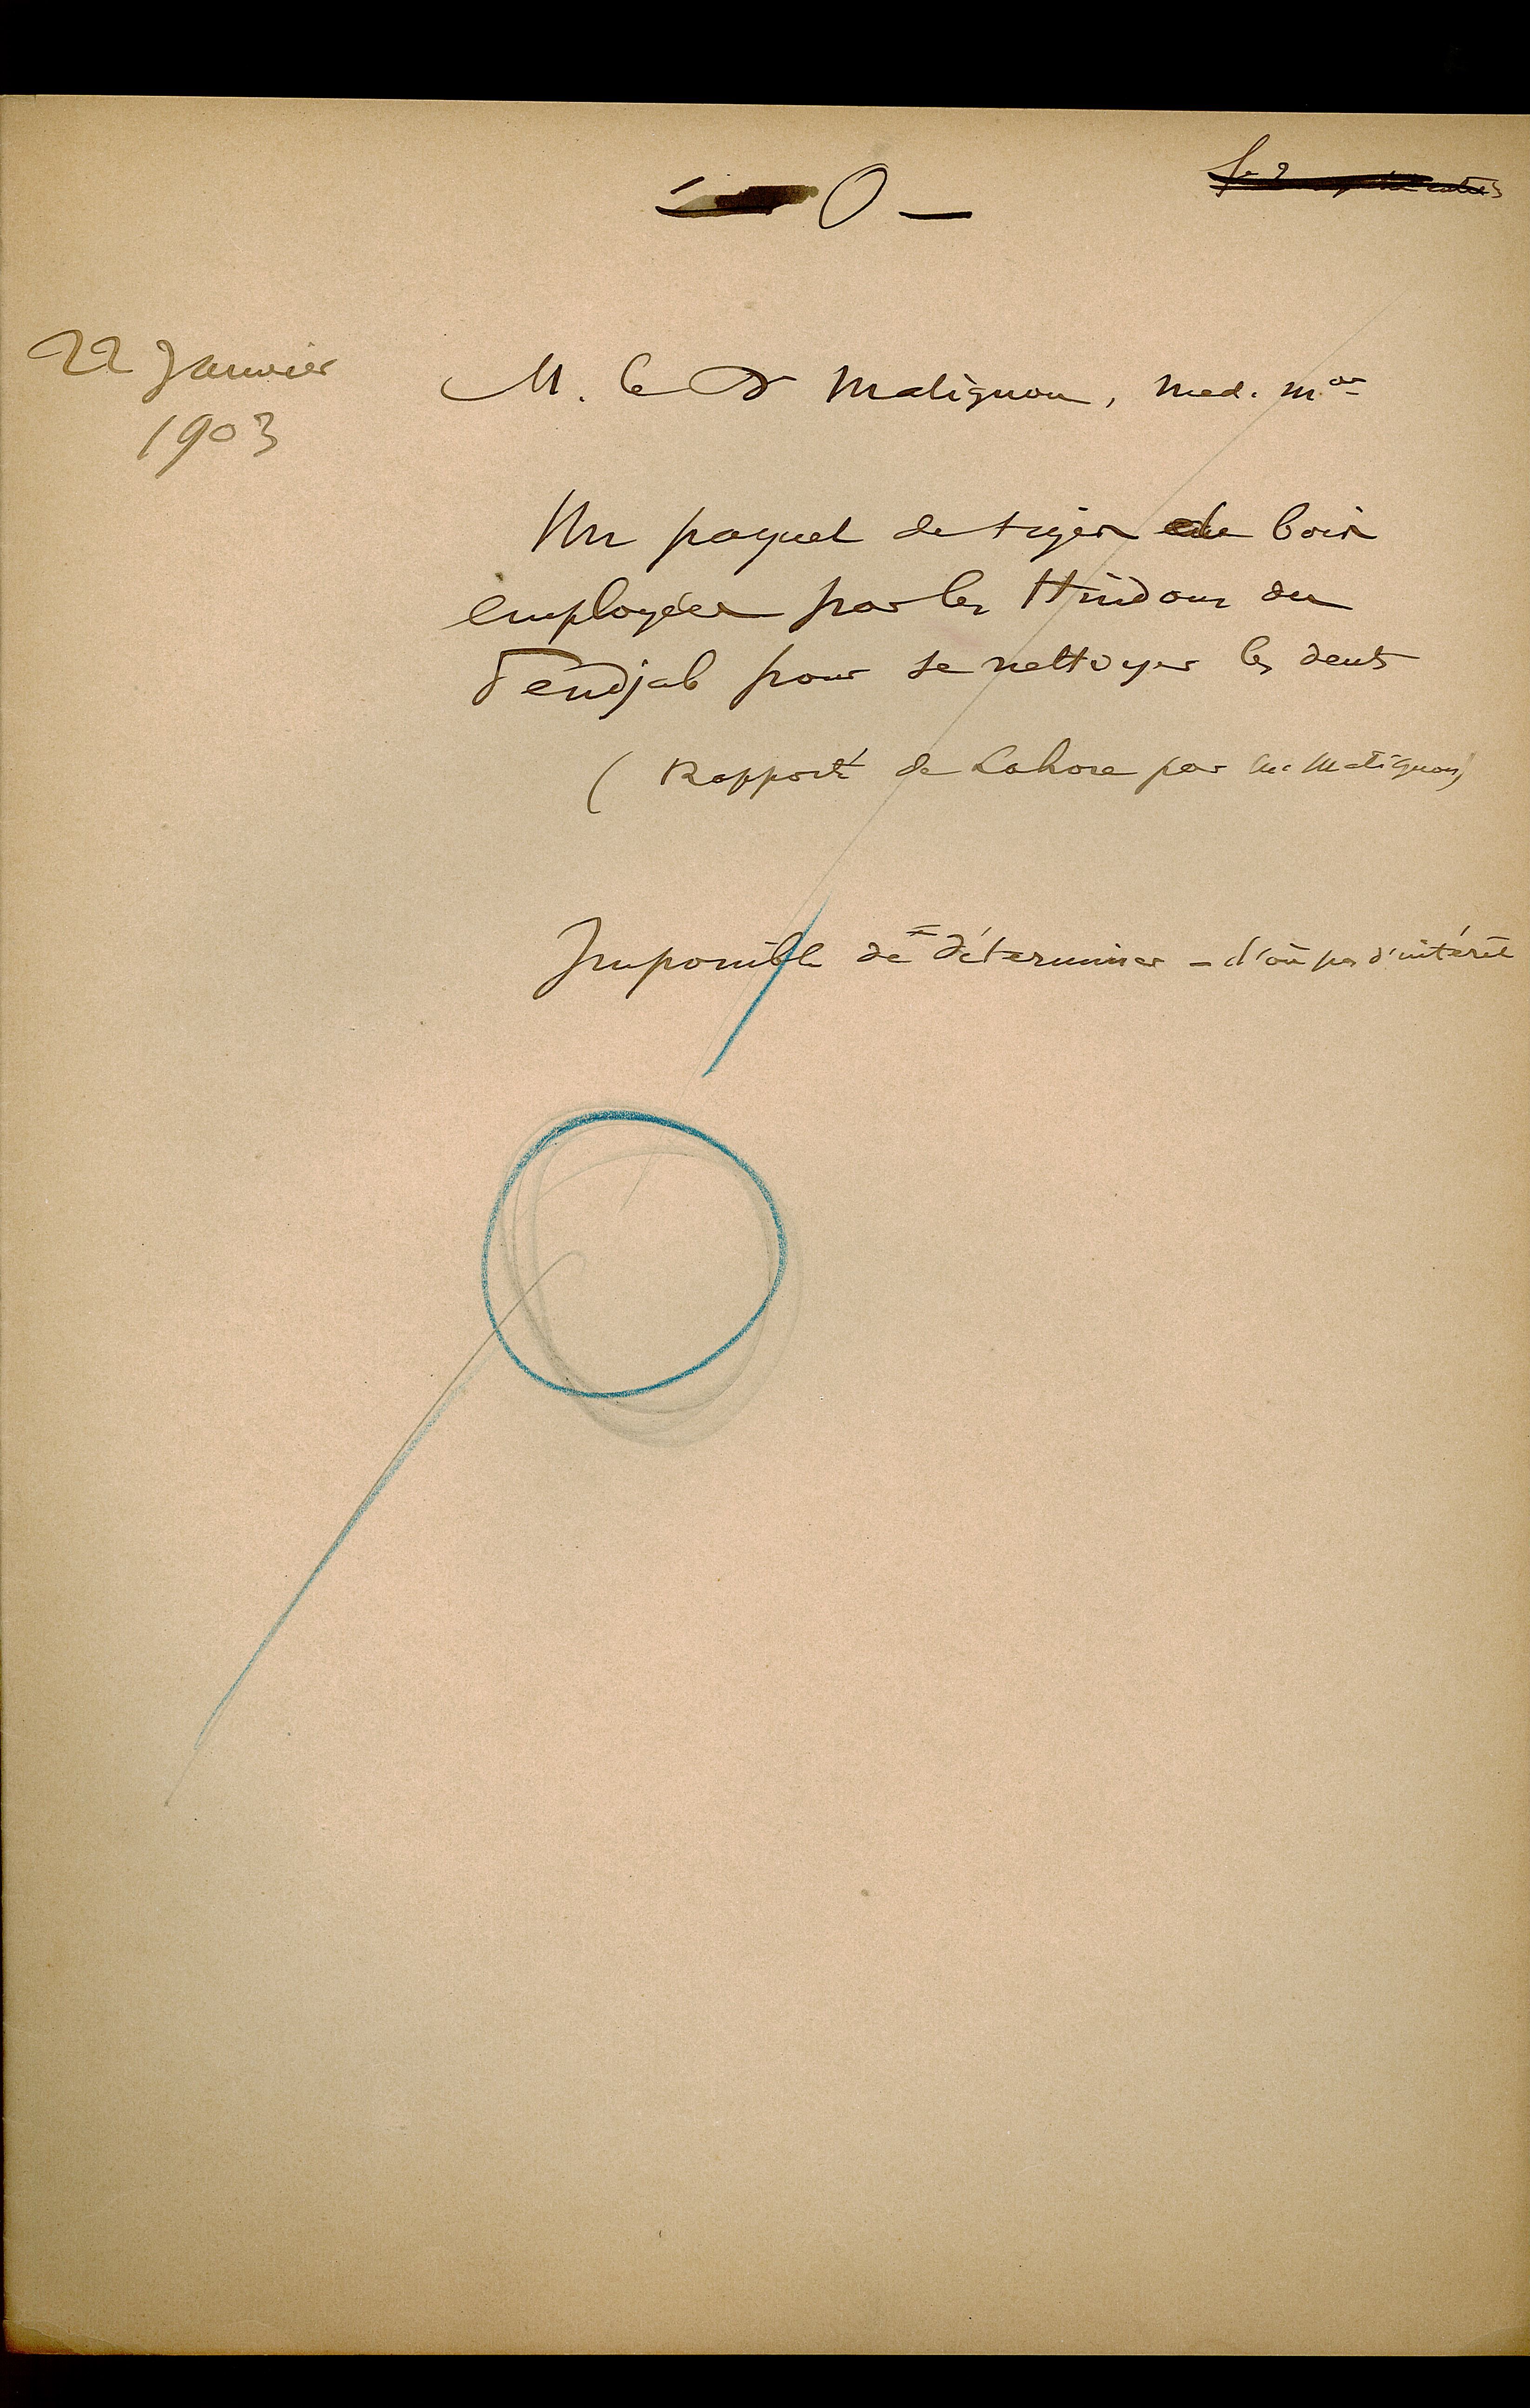 — O —
22 Janvier
1903
M. le Dr Matignon, med. mor
Un paquet de tiges de bois
employées par les Hindous du
Pendjab pour se nettoyer les dents
( Rapporté de Lahore par M. Matignon)
Impossible de déterminer - d'où pas d'intérêt